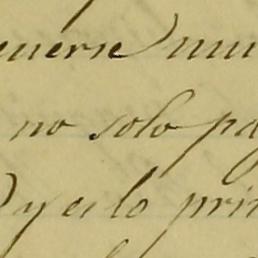 enerse mu
no solo pa
y es lo prin